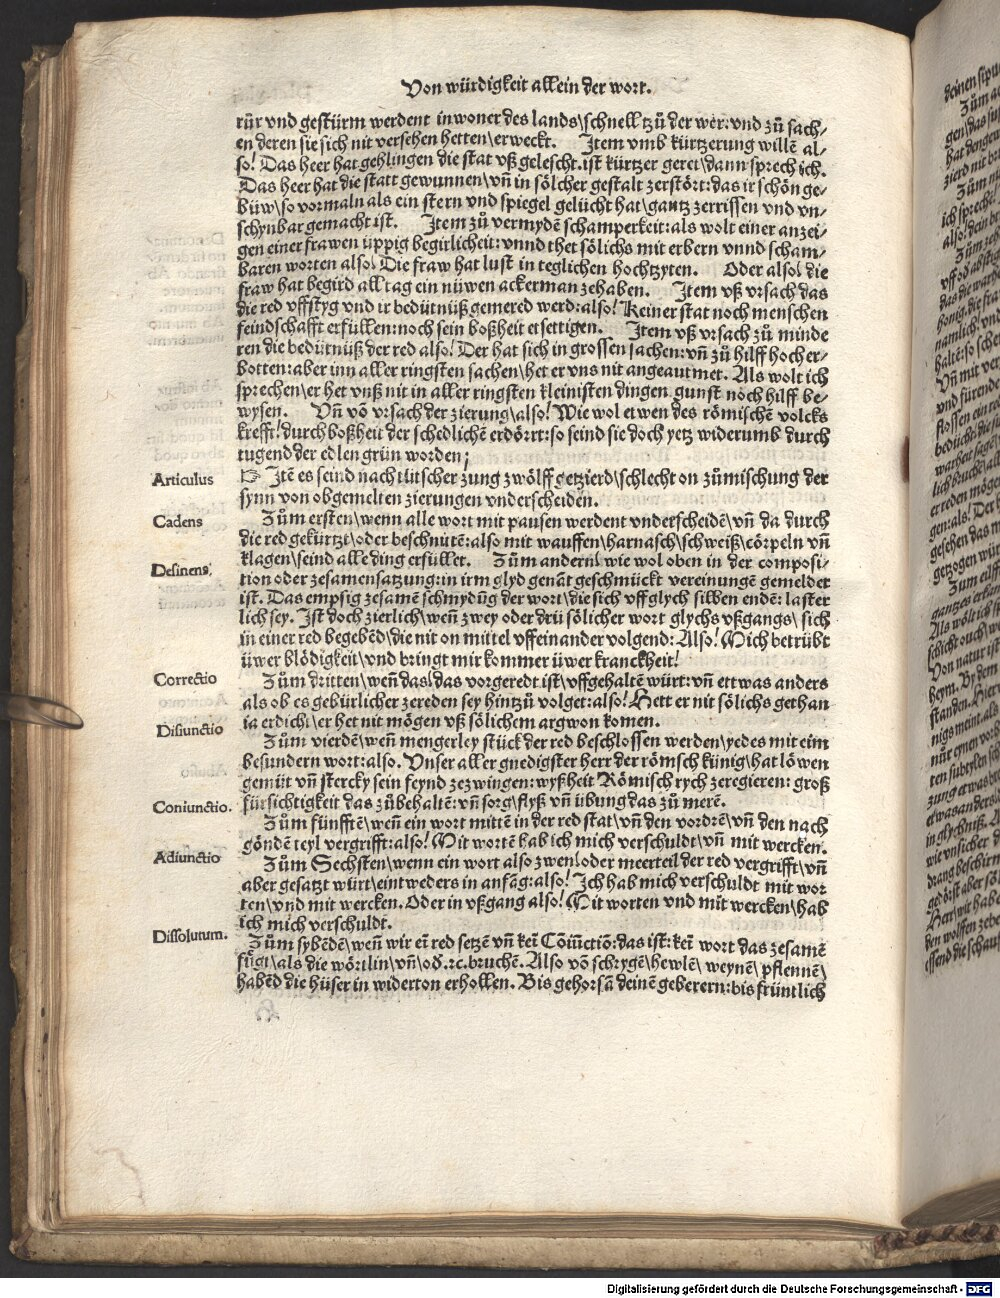 Von würdigkeit allein der wort.
rür vnd gestürm werdent inwoner des lands\schnell tzů der wer: vnd zů sach/
en deren sie sich nit versehen hetten\erweckt. Item vmb kürtzerung willē al/
so! Das heer hat gehlingen die stat vß gelescht. ist kürtzer geret\dann sprech ich.
Das heer hat die statt gewunnen\vñ in sölcher gestalt zerstört: das ir schön ge/
büw\so vormaln als ein stern vnd spiegel gelücht hat\gantz zerrissen vnd vn/
schynbar gemacht ist. Item zů vermydē schamperkeit: als wolt einer anzei/
gen einer frawen üppig begirlicheit: vnnd thet sölichs mit erbern vnnd scham/
baren worten also! Die fraw hat lust in teglichen hochtzyten. Oder also! die
fraw hat begird all tag ein nüwen ackerman zehaben. Item vß vrsach das
die red vffstyg vnd ir bedütnüß gemered werd: also! Keiner stat noch menschen
feindschafft erfüllen: noch sein boßheit ersettigen. Item vß vrsach zů minde
ren die bedütnüß der red also! Der hat sich in grossen sachen: vñ zů hilff hoch er/
botten: aber inn aller ringsten sachen\het er vns nit angeaut met. Als wolt ich
sprechen\er het vnß nit in aller ringsten kleinisten dingen gunst noch hilff be/
wysen. Vñ vō vrsach der zierung\also! Wie wol etwen des römischē volcks
krefft! durch boßheit der schedlichē erdörrt: so seind sie doch yetz widerumb durch
tugend der edlen grün worden;
Articulus
Itē es seind nach tütscher zung zwölff getzierd\schlecht on zůmischung der
synn von obgemelten zierungen vnderscheiden.
Cadens
Zům ersten\wenn alle wort mit pausen werdent vnderscheidē\vñ da durch
die red gekürtzt\oder beschnittē: also mit wauffen\harnasch\schweiß\cörpeln vñ
klagen\seind alle ding erfüllet. Zům andern! wie wol oben in der composi/
Desinens;
tion oder zesamensatzung: in irm glyd genāt geschmückt vereinungē gemeldet
ist. Das empsig zesamē schmydūg der wort\die sich vff glych silben endē: laster
lich sey. Ist doch zierlich\weñ zwey oder drü sölicher wort glychs vßgangs\ sich
in einer red begebēd\die nit on mittel vff einander volgend: Also! Mich betrübt
üwer blödigkeit\vnd bringt mit kommer üwer kranckheit!
Correctio
Zům dritten\weñ das\das vorgeredt ist\vffgehaltē würt: vñ ettwas anders
als ob es gebürlicher zereden sey hintzů volget: also! Hett er nit sölichs gethan
ia erdicht\er het nit mögen vß sölichem argwon komen.
Disiunctio
Zům vierdē\weñ mengerley stück der red beschlossen werden\yedes mit eim
besundern wort: also. Vnser aller gnedigster herr der römsch künig\hat löwen
gemüt vñ stercky sein feynd zezwingen: wyßheit Römisch rych zeregieren: groß
Coniunctio.
fürsichtigkeit das zůbehaltē: vñ sorg\flyß vñ übung das zů merē.
Zům fünfftē\weñ ein wort mittē in der red stat\vñ den vordrē\vñ den nach
göndē teyl vergrifft: also! Mit wortē hab ich mich verschuldt\vñ mit wercken.
Adiunctio
Zům Sechsten\wenn ein wort also zwen\oder meerteil der red vergrifft\vñ
aber gesatzt würt\eintweders in anfāg: also! Ich hab mich verschuldt mit wor
ten\vnd mit wercken. Oder in vßgang also! Mit worten vnd mit wercken\hab
ich mich verschuldt.
Dissolutum.
Zům sybēdē\weñ wir eī red setzē vñ keī Cōiūctiō: das ist: keī wort das zesamē
fügt\als die wörtlin\vñ\od.ꝛc. bruchē. Also vō schrygē\hewlē\ weynē\ pflennē\
habēd die hüser in widerton erhollen. Bis gehorsā deinē geberern: bis früntlich
Digitalisierung gefördert durch die Deutsche Forschungsgemeinschaft - DFG